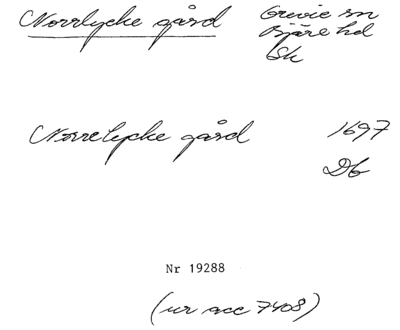 Norrlycke gård Grevie sn
Bjäre hd
Sk
Norrelycke gård 1697
Db
Nr 19288
(ur acc 7408)